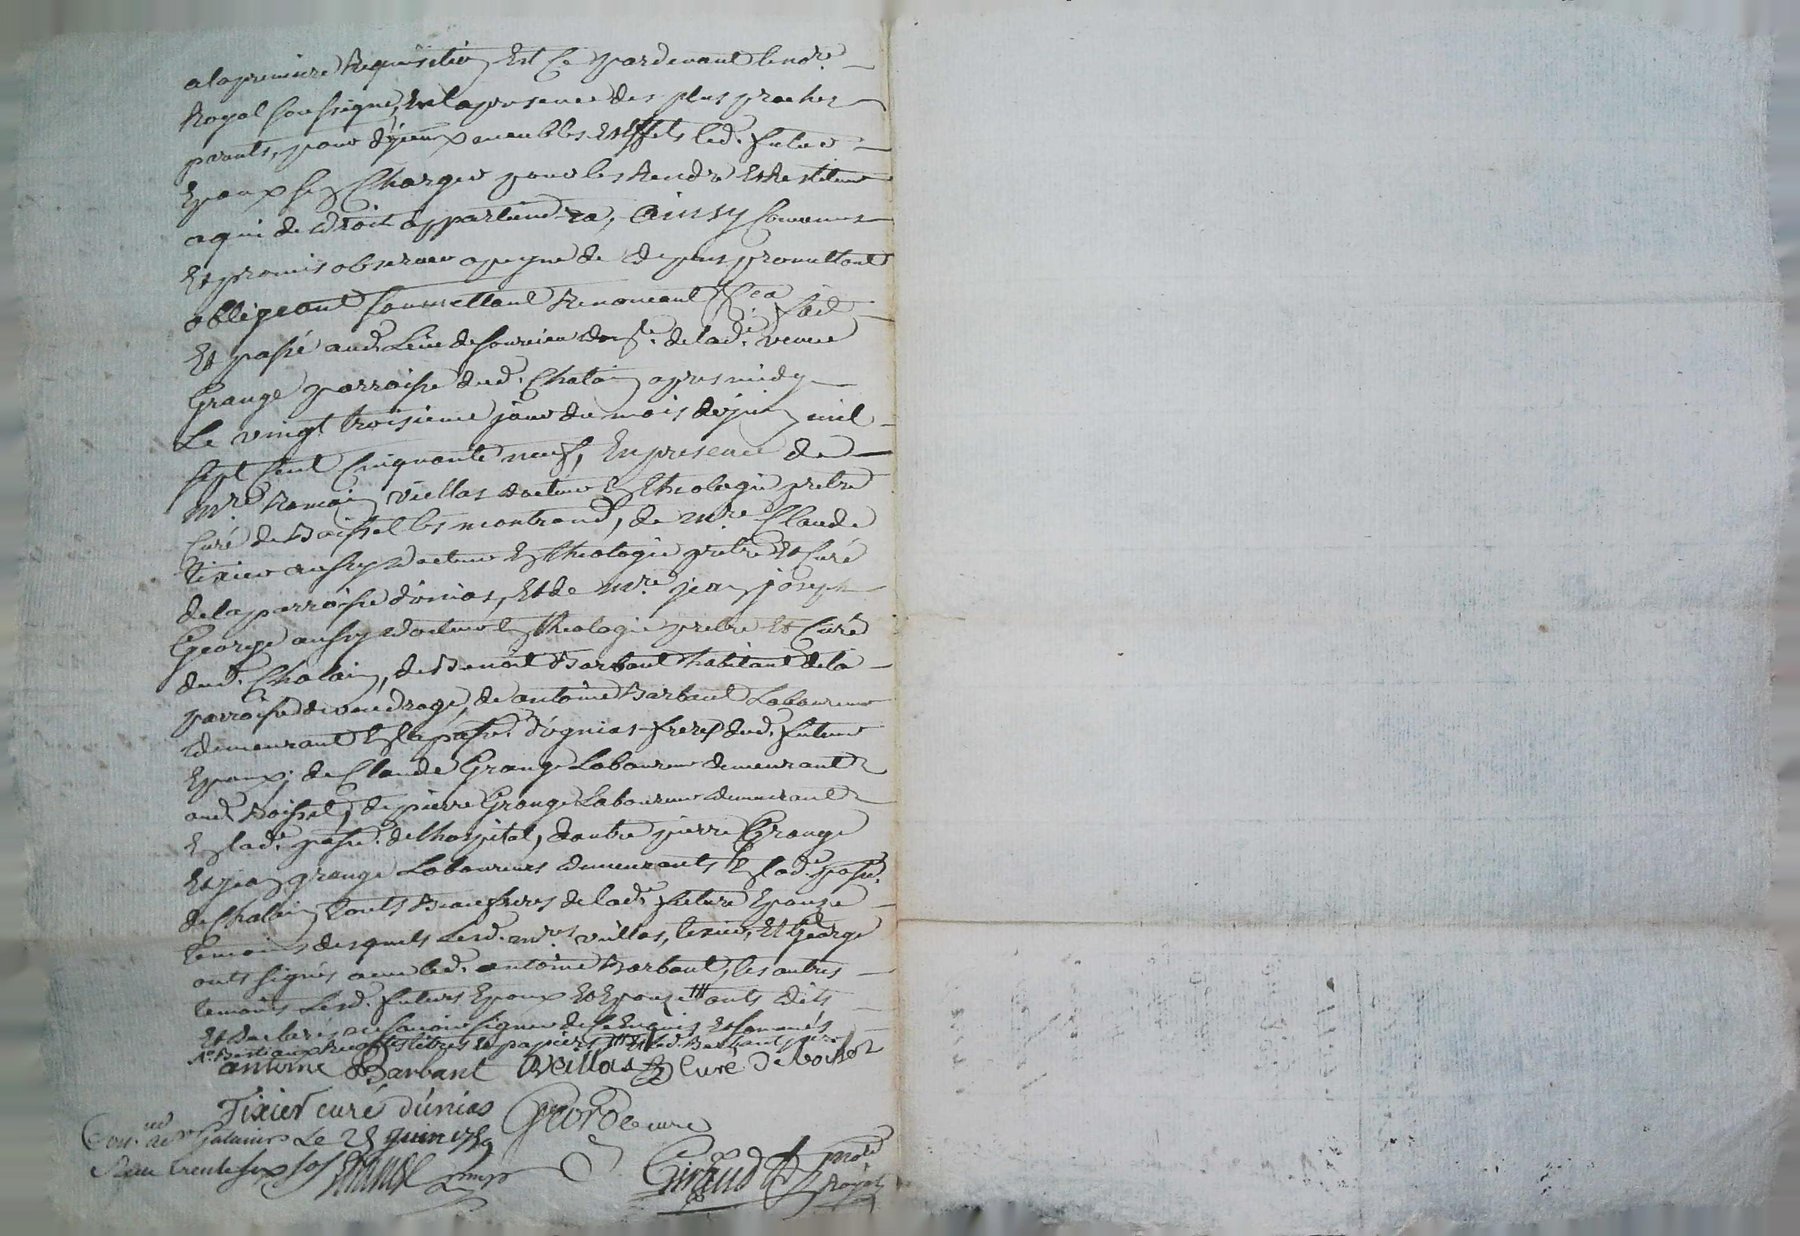 a la premiere Requisition Est Ce pardevant le no.re
Royal soussigné, En la presence des plus proches
parents, pour d'yceux meubles Et Effets led. futur
Epoux s'en Charger pour les Rendre Et Restituer
a qui de droit appartiendra, Ainsy Convenus
Et promis observer a peyne de depens promettant
obligeant soumettant Renonceant &ca. fait
Et passé aud. Lieu de domle. de lad.e veuve
Grange parroisse dud. Chalain apres midy
Le vingt troisieme jour du mois de juin mil
sept Cent Cinquante neuf, En presence de
mre. Romain Viellas docteur En theologie pretre
Curé de Boisset les montrond, de mre. Claude
tixier aussy docteur En theologie pretre Et Curé
de la parroisse d'unias, Et de mre. jean joseph
George aussy docteur En theologie pretre Et Curé
dud. Chalain, de Benoit Barbant habitant de la
parroisse de, de antoine Barbant Laboureur
demeurant En la passe. d'ugnias freres dud. futeur
Epoux; de Claude Grange Laboureur demeurant
aud. Boisset, de pierre Grange Laboureur demeurant
En lad. passe. de lhospital, d'autre pierre Grange
Et jean grange Laboureurs demeurants En lad. passe.
de Chalain touts Beaufreres de lad.e future Epouse
temoins desquels Lesd. mres. viellas, tixier, Et George
onts signés avec led. antoine Barbant, les autres
temoins Lesd. futurs Epoux Et Epouse onts dits
Et declarés ne sçavoir signer de ce Enquis Et sommés
Bestiaux titres Et papiers Et led. Barbant pere
antoine Barbant Veillas Curé de boisset
Tixier curé d'únias George curé
Con.lé a St Galmier Le 25 juin 1759
Reçu trente six sols
Giraud no.re
Royal